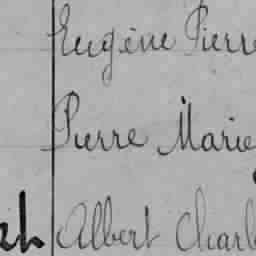 Eugène Pierre
Pierre Marie
Albert Charl